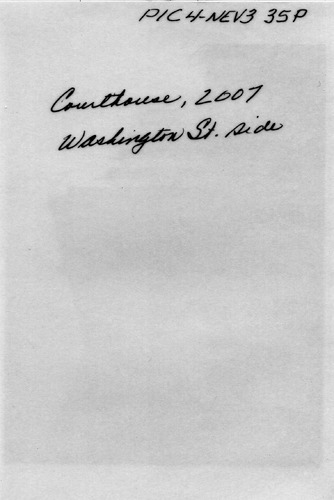 PIC 4-NEV3 35P
Courthouse, 2007
Washington St. side